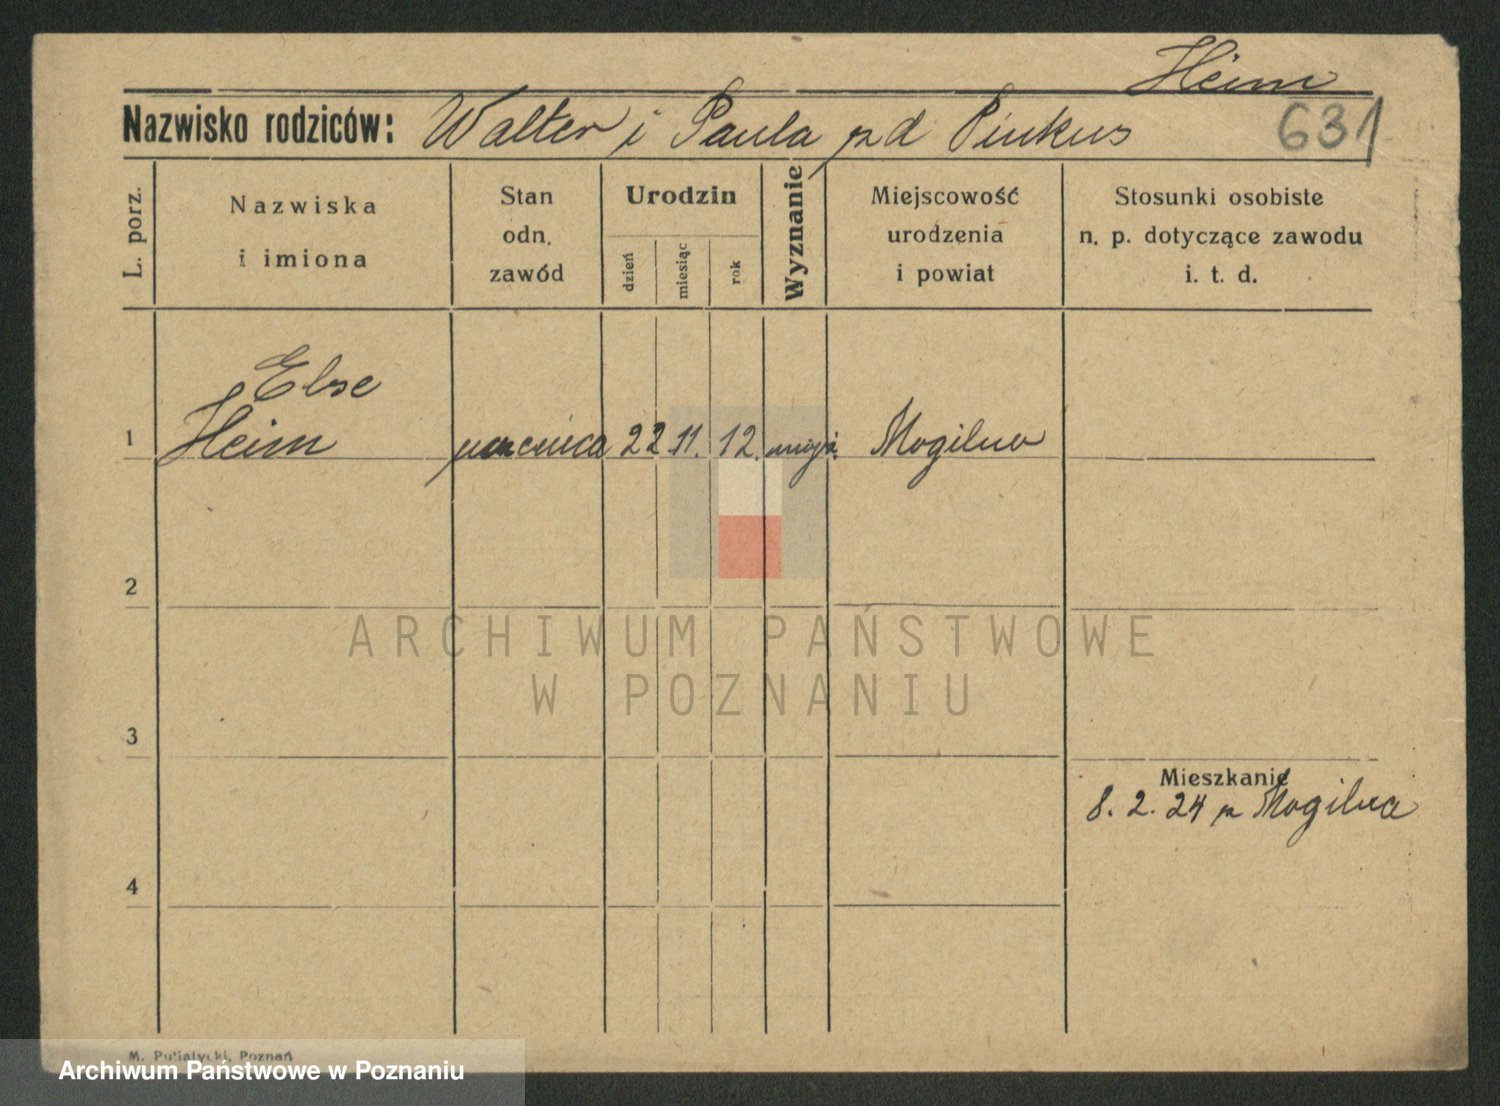 Heim
Nazwisko rodziców: Walter i Paula zd Pinkus
631
L. porz.
Nazwiska
i imiona
Stan
odn.
zawód
Urodzin
dzień
miesiąc
rok
Wyznanie
Miejscowość
urodzenia
i powiat
Stosunki osobiste
n. p. dotyczące zawodu
i. t. d.
Else
1 Heim 22 11. 12. mojż. Mogilno
2
ARCHIWUM PAŃSTWOWE
W POZNANIU
3
Mieszkanie
8. 2. 24 z Mogilna
4
M. Putiatycki, Poznań
Archiwum Państwowe w Poznaniu